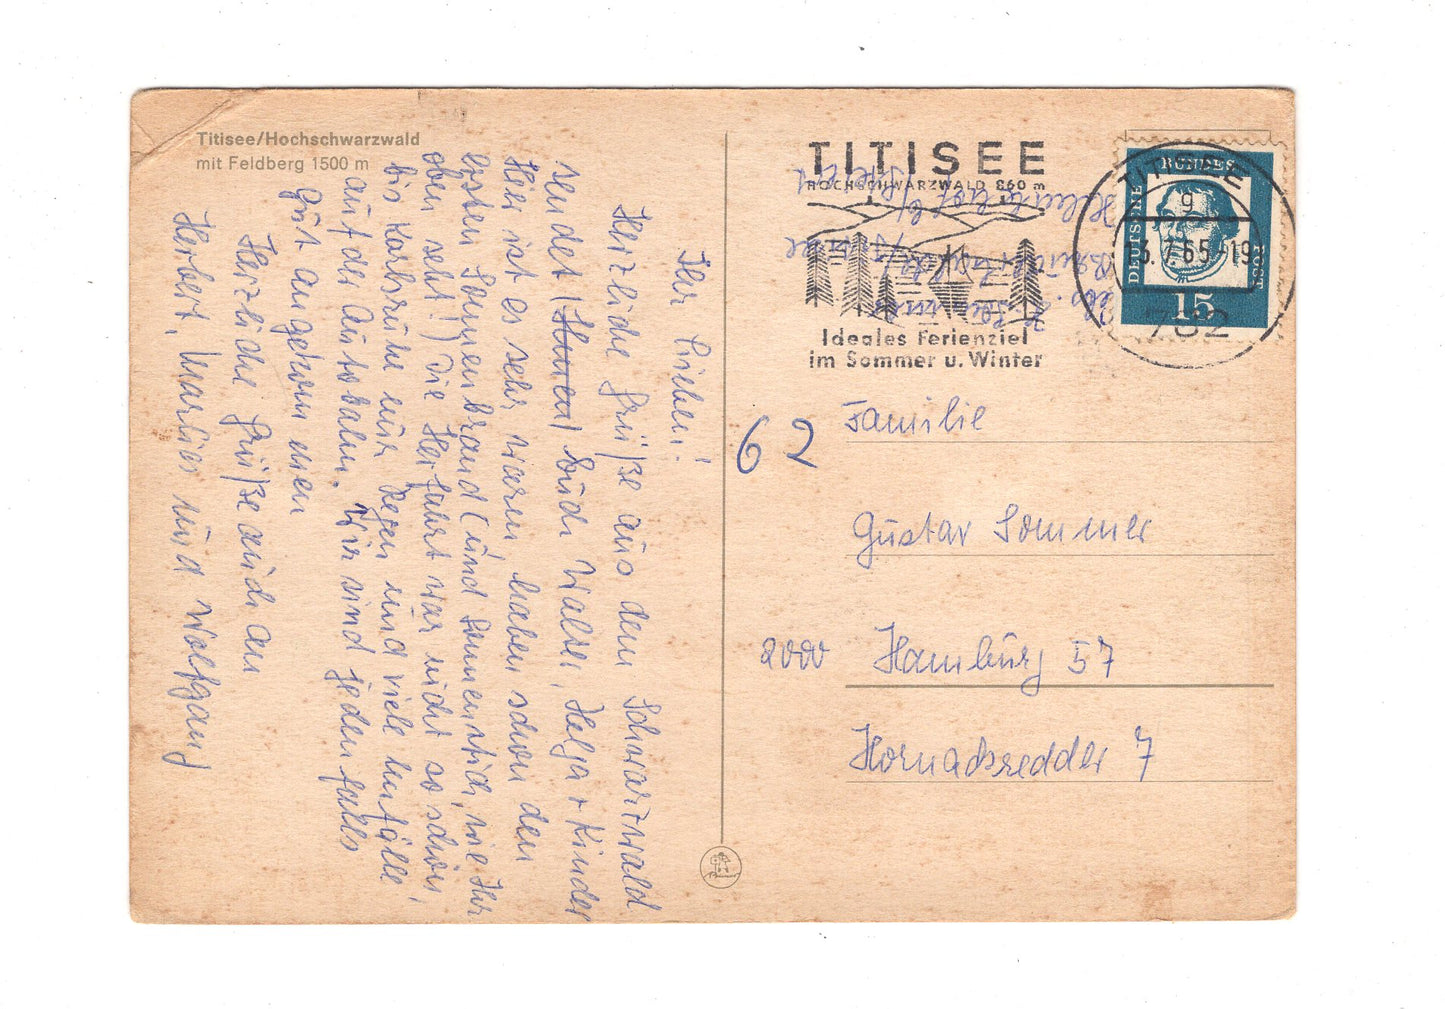 Titisee/Hochschwarzwald
mit Feldberg 1500 m
Ihr Lieben!
Herzliche Grüße aus dem Schwarzwald
sendet Euch Walter, Helga + Kinder
Hier ist es sehr warm, haben schon den
ersten Sonnenbrand (und Sonnenstich, wie Ihr
oben seht!) Die Herfahrt war nicht so schön,
bis Karlsruhe nur Regen und viele Unfälle
auf der Autobahn. Wir sind jedenfalls
gut angekommen
Herzliche Grüße auch an
Herbert, Marlies und Wolfgang
TITISEE
HOCHSCHWARZWALD 860 m
Ideales Ferienziel
im Sommer u. Winter
TITISEE
9
3.7.65-19
782
DEUTSCHE
BUNDES
POST
15
62
Familie
Gustav Sommer
2000 Hamburg 57
Hornacksredder 7